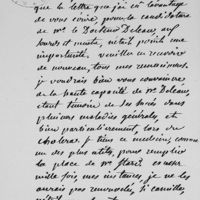 que la lettre que j'ai eu l'avantage
de vous écrire pour la candidature
de Mr. le Docteur Deleau, aux
sourds et muets, n'était point une
importunité, veuillez en recevoir
de nouveau, tous mes remerciemens.
je voudrais bien vous convaincre
de la haute capacité de Mr. Deleau,
étant témoin de ses succès dans
plusieurs maladies générales, et
bien particulièrement, lors du
choléra; je tiens ce médecin, comme
un des plus utiles, pour remplir
la place de Mr. Itard.
mille fois mes instances, je ne les
aurais pas renouvelées, si